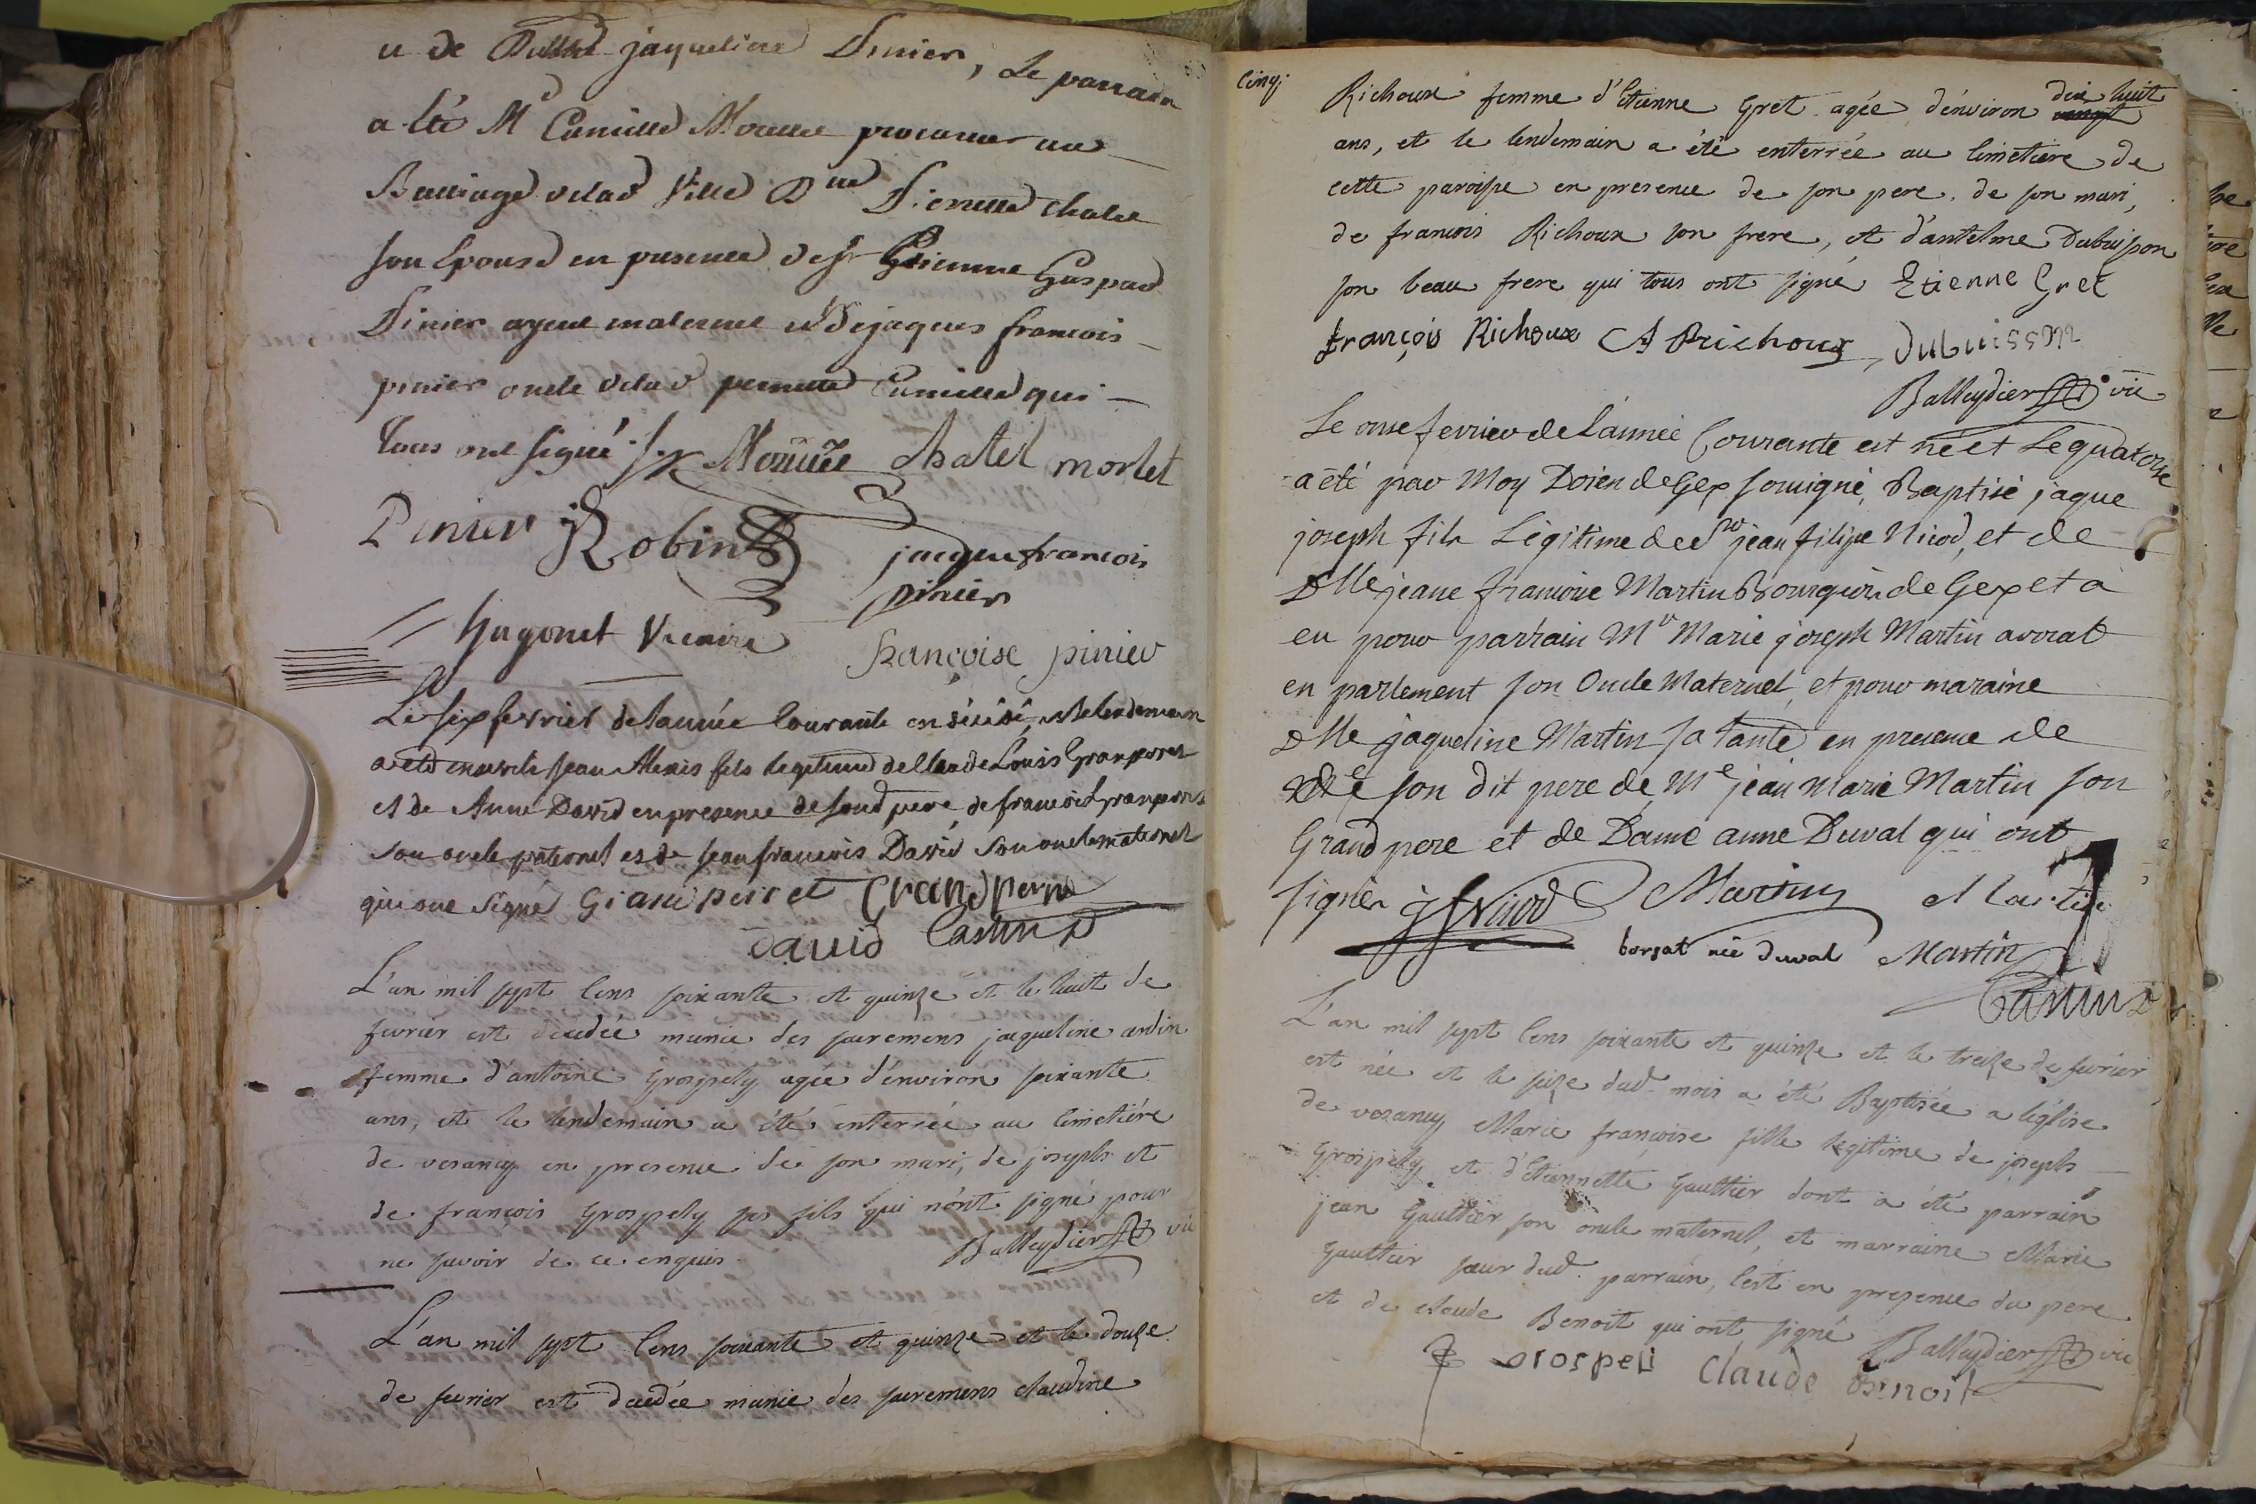 u de jaqueline Pinier, Le parrain
a été Mr Camille Mourée procureur au
Bailliage de lad Ville Dlle Pierrette chatel
son Epouse en presence de sr Etienne Gaspard
Pinier ayeul maternel et de jaques francois
pinier oncle de lad pernette Camille qui
tous ont signé Mourée chatel morlet
Pinier Robin jacque francois
pinier
hugonet Vicaire françoise pinier
Le six fevrier de l'année Courante en décédé, et le lendemain
a été enseveli jean Alexis fils legitime de Claude Louis Granperret
et de Anne David en presence de sond pere, de francois granperret
son oncle paternel et de jean francois David son oncle maternel
qui ont signé Grandperret Grandperret
David Castin D
L'an mil sept Cens soixante et quinze et le huit de
fevrier est décédée munie des sacremens jaqueline ardin
femme d'antoine Grospely agée d'environ soixante
ans, et le lendemain a été enterrée au Cimetiére
de vesancy en presence de son mari, de joseph et
de françois Grospely ses fils qui n'ont signé pour
ne savoir de ce enquis. Balleydier vic
L'an mil sept Cens soixante et quinze et le douze
de fevrier est décedée munie des sacremens claudine
Cinq;
Richoux femme d'Etienne Gret agée d'environ dix huit
ans, et le lendemain a été enterrée au Cimetiere de
cette paroisse en presence de son pere, de son mari,
de francois Richoux son frere, et d'antelme Dubuisson
son beau frere qui tous ont signé Etienne Gret
françois Richoux A Richoux, dubuisson
Balleydier vic
Le onse fevrier de L'année Courante est né et Le quatorse
a été par Moy Doien de Gex soussigné, Baptisé jaque
joseph fils Légitime de Sr jean filipe Nicod, et de
Dlle jeane francoise Martin Bourgeois de Gex et a
eu pour parrain Mr Marie joseph Martin avocat
en parlement son Oncle Maternel, et pour maraine
Dlle jaqueline Martin sa tante en presence de
de son dit pere de Me jean Marie Martin son
Grand pere et de Dame anne Duval qui ont
signés jf Nicod Martin Martin
borsat née duval Martin
Castin D
L'an mil sept Cens soixante et quinze et le treize de fevrier
est née et le seize dud. mois a été Baptisée a l'église
de vesancy Marie françoise fille legitime de joseph
Grospely et d'Etiennette Gaulthier dont a été parrain
jean Gaulthier son oncle maternel, et marraine Marie
Gaulthier sœur dud. parrain, C'est en presence du pere
et de claude Benoit qui ont signé Balleydier vic
grospeli Claude Benoit